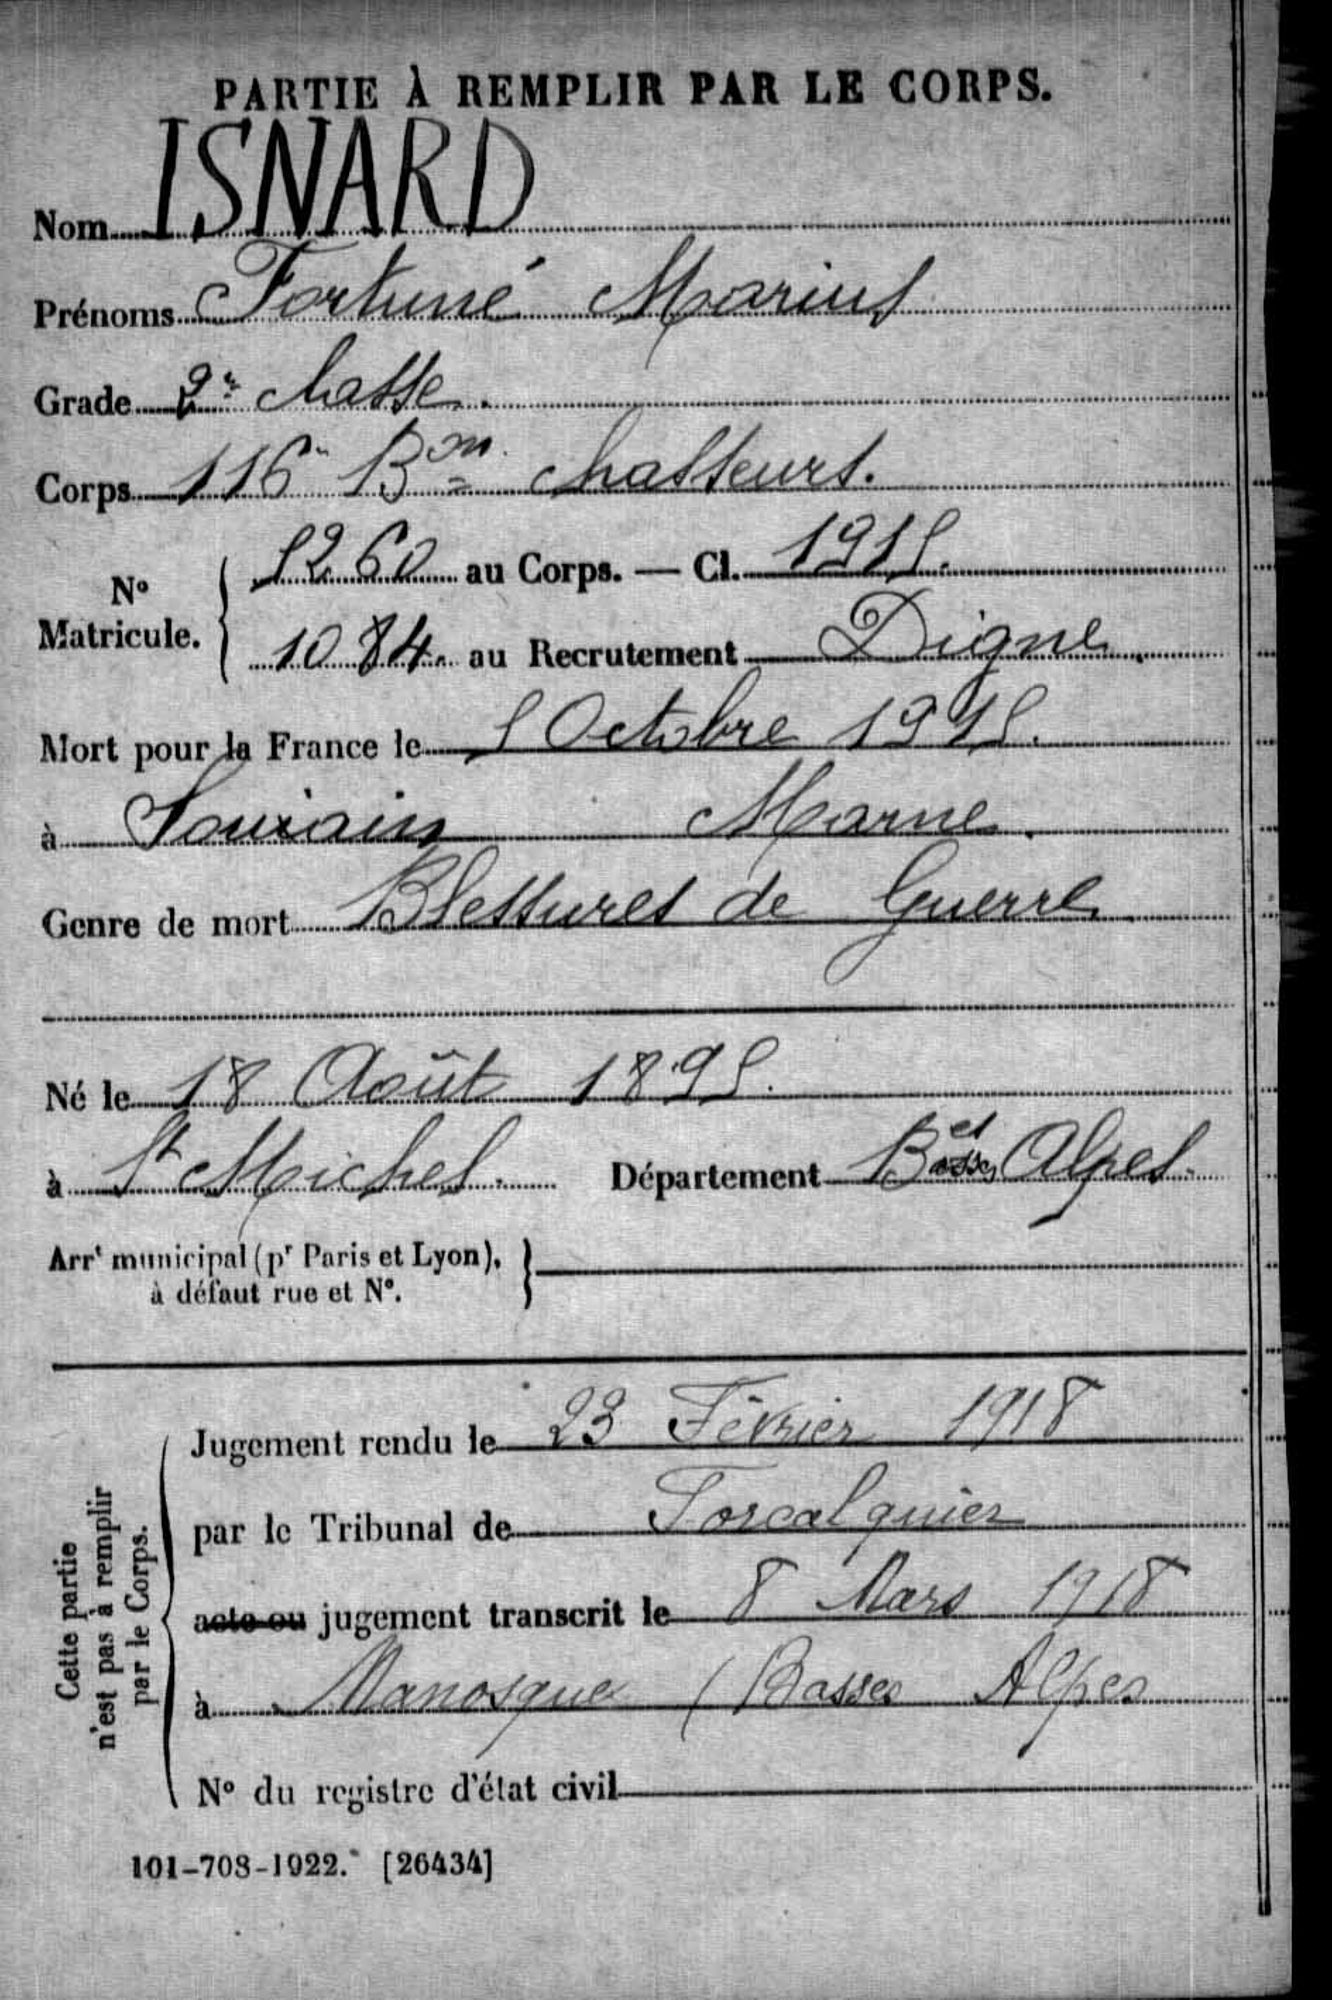 PARTIE À REMPLIR PAR LE CORPS.
Nom ISNARD
Prénoms Fortuné Marius
Grade 2e classe.
Corps 116e Bon chasseurs.
No Matricule. { 5260 au Corps. — Cl. 1915.
1084. au Recrutement Digne.
Mort pour la France le 5 Octobre 1915.
à Souain Marne.
Genre de mort Blessures de Guerre
Né le 18 Août 1895.
à St Michel. Département Bses Alpes.
Arrt municipal (pr Paris et Lyon), }
à défaut rue et No.
Cette partie
n'est pas à remplir
par le Corps.
Jugement rendu le 23 Février 1918
par le Tribunal de Forcalquier
acte ou jugement transcrit le 8 Mars 1918
à Manosque (Basses Alpes
No du registre d'état civil
101-708-1922. [26434]